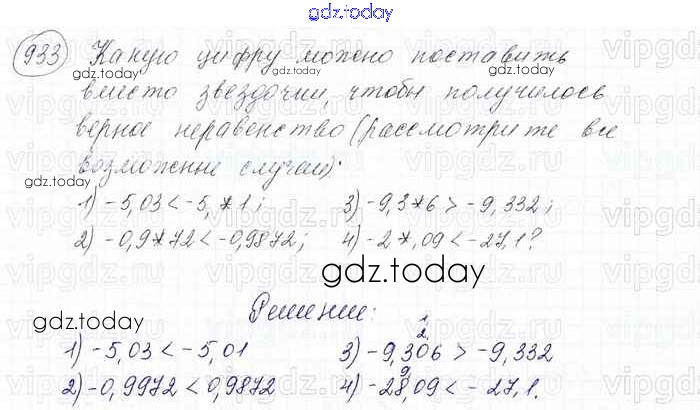 gdz.today
933 Какую цифру можно поставить
gdz.today gdz.today
вместо звездочки, чтобы получилось
верное неравенство (рассмотрите все
возможные случаи):
gdz.today
1) -5,03 < -5,*1; 3) -9,3*6 > -9,332;
2) -0,9*72 < -0,9872; 4) -2*,09 < -27,1?
gdz.today gdz.today
Решение:
gdz.today
1
2
1) -5,03 < -5,01 3) -9,306 > -9,332
9
2) -0,9972 < 0,9872 4) -28,09 < -27,1.
gdz.today